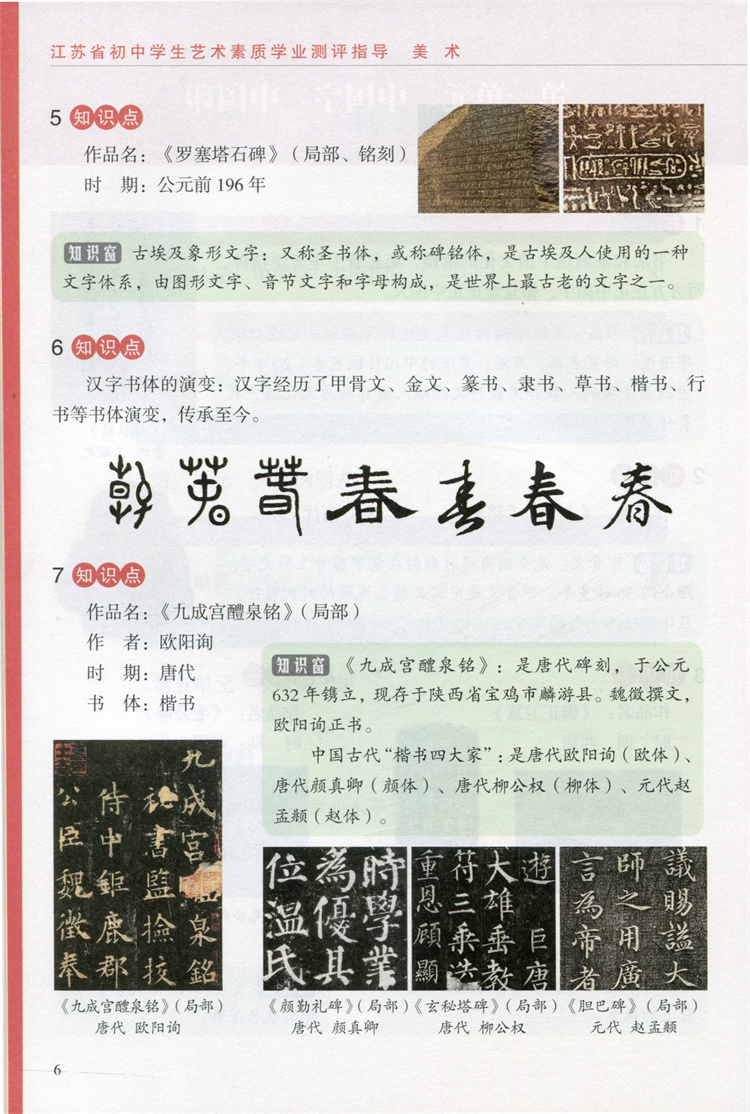 江苏省初中学生艺术素质学业测评指导 美 术
5 知识点
作品名：《罗塞塔石碑》（局部、铭刻）
时 期：公元前 196 年
知识窗 古埃及象形文字：又称圣书体，或称碑铭体，是古埃及人使用的一种
文字体系，由图形文字、音节文字和字母构成，是世界上最古老的文字之一。
6 知识点
汉字书体的演变：汉字经历了甲骨文、金文、篆书、隶书、草书、楷书、行
书等书体演变，传承至今。
春春春春春春春
7 知识点
作品名：《九成宫醴泉铭》（局部）
作 者：欧阳询
时 期：唐代
书 体：楷书
知识窗 《九成宫醴泉铭》：是唐代碑刻，于公元
632 年镌立，现存于陕西省宝鸡市麟游县。魏徵撰文，
欧阳询正书。
中国古代“楷书四大家”：是唐代欧阳询（欧体）、
唐代颜真卿（颜体）、唐代柳公权（柳体）、元代赵
孟頫（赵体）。
九成宫醴泉銘
秘書監撿挍
侍中鉅鹿郡
公臣魏徵奉
時學業
為優其
位温氏
遊 巨唐
大雄垂教
符三乘迭
重恩顧顯
議賜謚大
師之用廣
言為帝者
《九成宫醴泉铭》（局部）
唐代 欧阳询
《颜勤礼碑》（局部）
唐代 颜真卿
《玄秘塔碑》（局部）
唐代 柳公权
《胆巴碑》（局部）
元代 赵孟頫
6